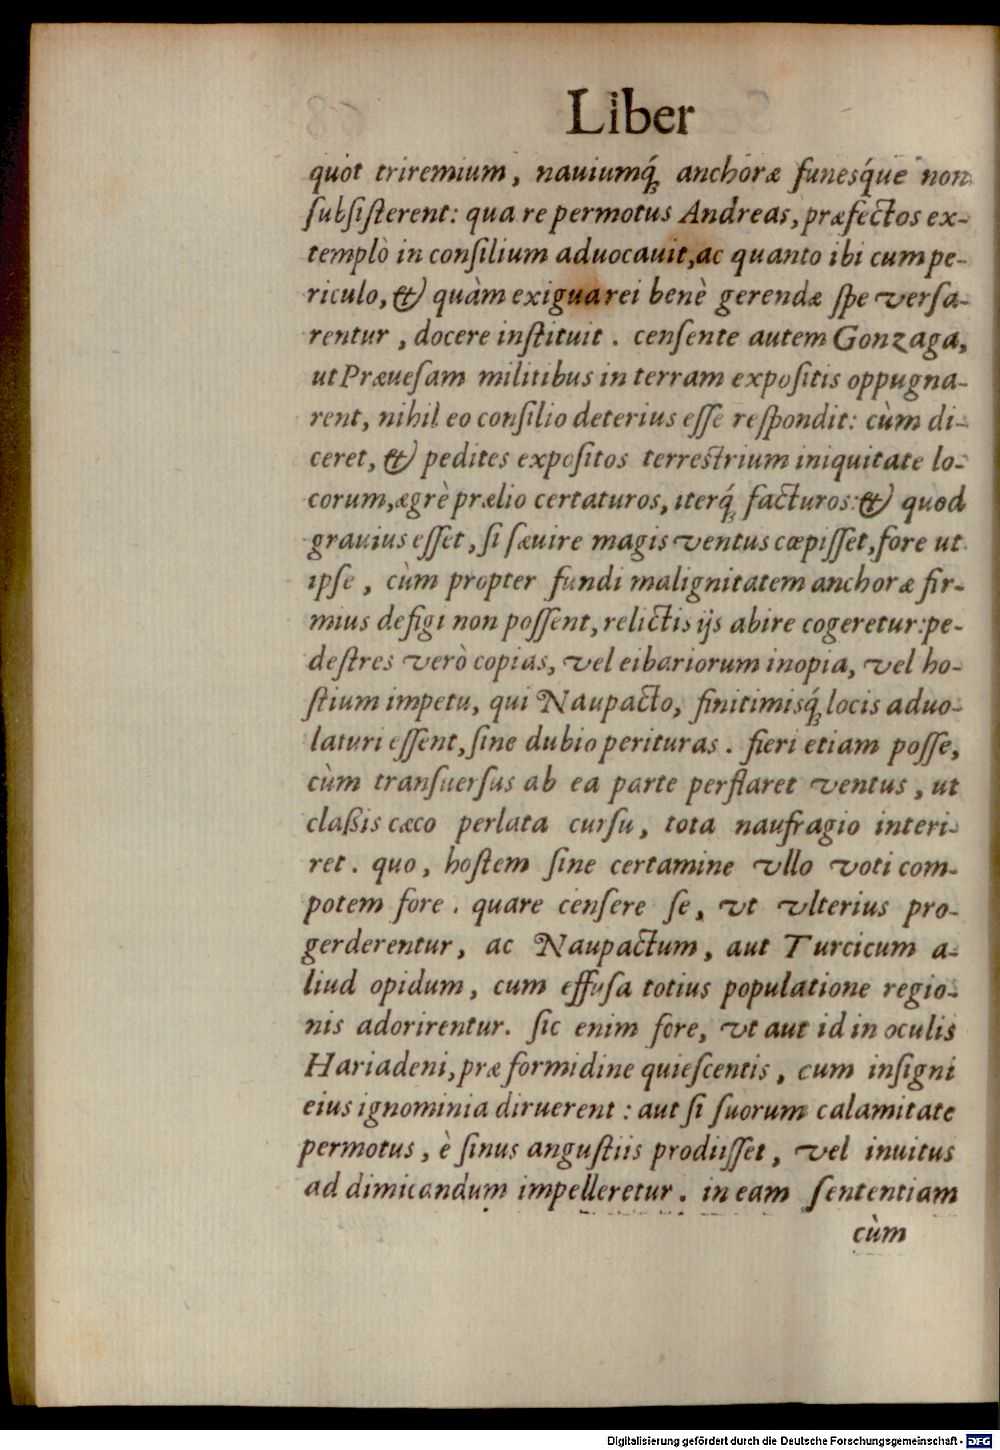 Liber
quot triremium, nauiumq́ꝫ anchoræ funesq́ue non
ſubſiſterent: qua re permotus Andreas, præfectos ex-
templò in conſilium aduocauit, ac quanto ibi cum pe-
riculo, & quàm exigua rei benè gerendæ ſpe verſa-
rentur, docere inſtituit. cenſente autem Gonzaga,
ut Præueſam militibus in terram expoſitis oppugna-
rent, nihil eo conſilio deterius eſſe reſpondit: cùm di-
ceret, & pedites expoſitos terreſtrium iniquitate lo-
corum, ægrè prælio certaturos, iterq́ꝫ facturos: & quod
grauius eſſet, ſi ſæuire magis ventus cœpiſſet, fore ut
ipſe, cùm propter fundi malignitatem anchoræ fir-
mius defigi non poſſent, relictis ijs abire cogeretur: pe-
deſtres verò copias, vel eibariorum inopia, vel ho-
ſtium impetu, qui Naupacto, finitimisq́ꝫ locis aduo-
laturi eſſent, ſine dubio perituras. fieri etiam poſſe,
cùm tranſuerſus ab ea parte perflaret ventus, ut
claßis cæco perlata curſu, tota naufragio interi-
ret. quo, hoſtem ſine certamine vllo voti com-
potem fore. quare cenſere ſe, vt vlterius pro-
gerderentur, ac Naupactum, aut Turcicum a-
liud opidum, cum effuſa totius populatione regio-
nis adorirentur. ſic enim fore, vt aut id in oculis
Hariadeni, præ formidine quieſcentis, cum inſigni
eius ignominia diruerent: aut ſi ſuorum calamitate
permotus, è ſinus anguſtiis prodiiſſet, vel inuitus
ad dimicandum impelleretur. in eam ſententiam
cùm
Digitalisierung gefördert durch die Deutsche Forschungsgemeinschaft - DFG